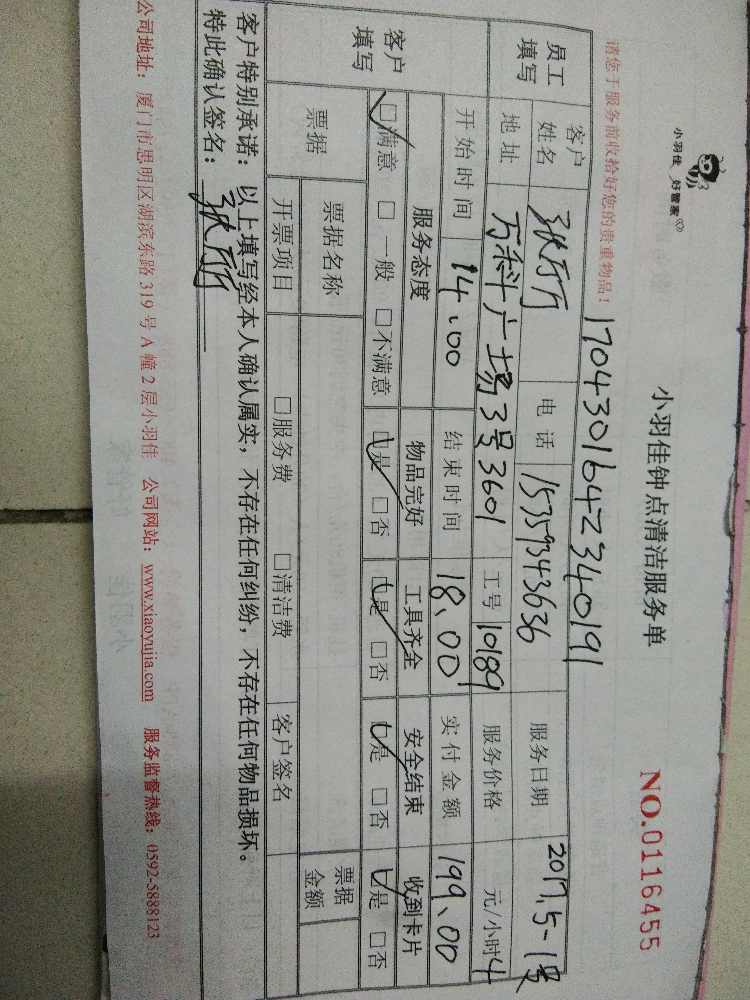 小羽佳 好管家
小羽佳钟点清洁服务单
NO.0116455
请您于服务前收拾好您的贵重物品！
17043016423401​91
员工填写 客户姓名 电话 15359343636 服务日期 2017.5-1号
地址 万科广场3号3601 工号 10189 服务价格 元/小时 4
开始时间 14.00 结束时间 18.00 实付金额 199.00
客户填写 服务态度 物品完好 工具齐全 安全结束 收到卡片
☑满意 □一般 □不满意 ☑是 □否 ☑是 □否 ☑是 □否 ☑是 □否
票据 票据名称 票据金额
开票项目 □服务费 □清洁费 客户签名
客户特别承诺：以上填写经本人确认属实，不存在任何纠纷，不存在任何物品损坏。
特此确认签名：
公司地址：厦门市思明区湖滨东路319号A幢2层小羽佳 公司网站：www.xiaoyujia.com 服务监督热线：0592-5888123